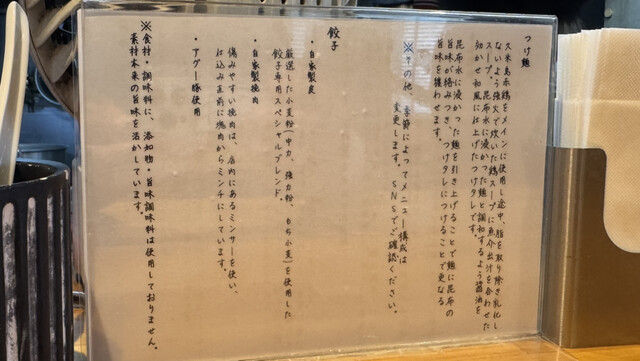 つけ麺
久米島赤鶏をメインに使用し途中、脂を取り除き乳化し
ないよう強火で炊いた鶏スープに魚介出汁を合わせた
スープ。昆布水に浸かった麺と調和するよう醤油を
効かせ和風に仕上げたつけタレです。
昆布水に浸かった麺を引き上げることで麺に昆布の
旨味が絡みつき、つけタレにつけることで更なる
旨味を纏わせます。
※その他、季節によってメニュー構成は
変更します。SNSでご確認ください。
餃子
・自家製皮
厳選した小麦粉(中力、強力粉、もち小麦)を使用した
餃子専用スペシャルブレンド。
・自家製挽肉
傷みやすい挽肉は、店内にあるミンサーを使い、
仕込み直前に塊肉からミンチにしています。
・アグー豚使用
※食材・調味料に、添加物・旨味調味料は使用しておりません。
素材本来の旨味を活かしています。